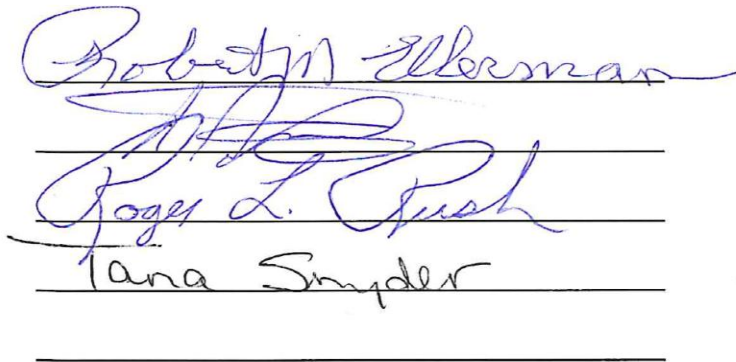 Robert M Ellerman
Roger L. Rush
Tana Snyder